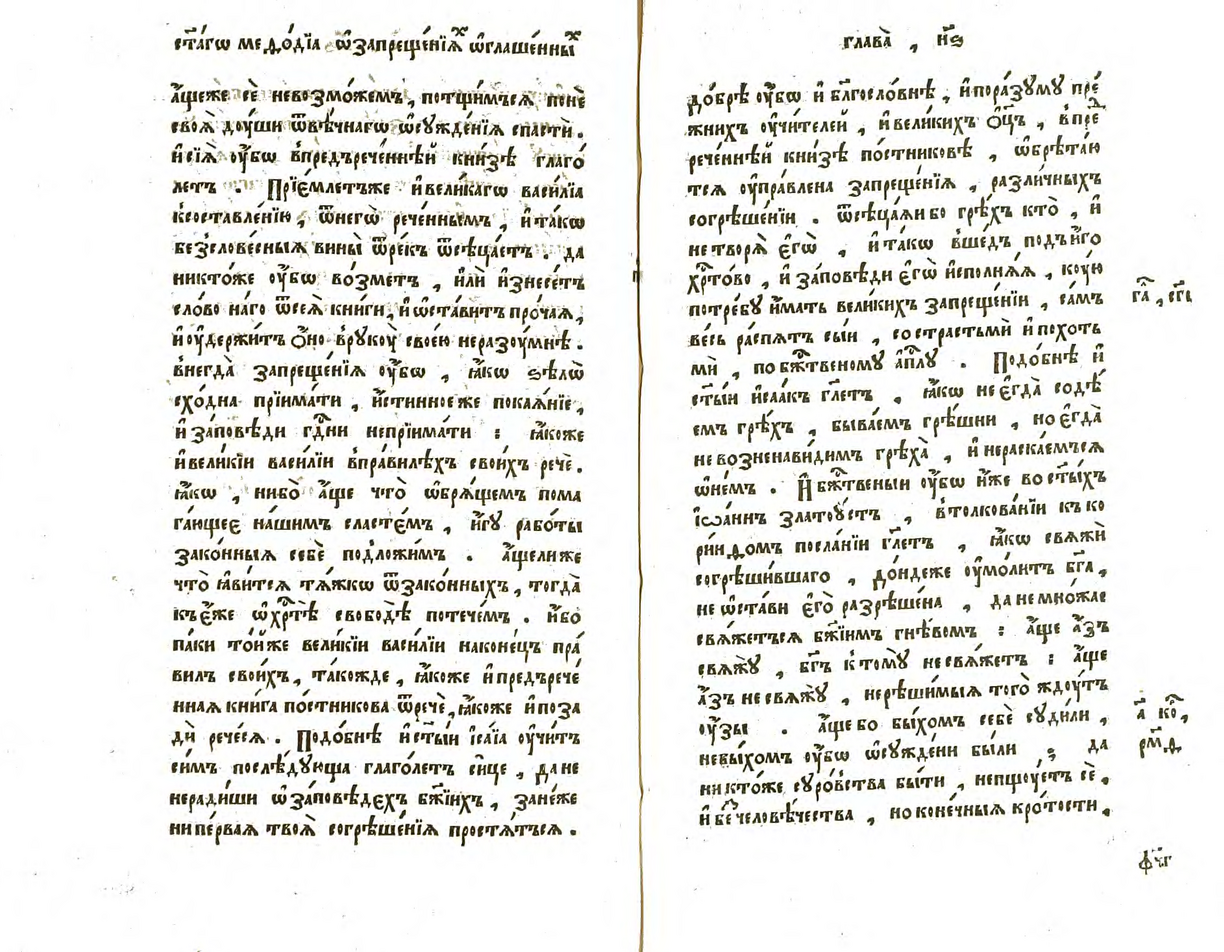 ст҃а́гѡ меѳо́дїа ѡ҆запреще́нїѧⷯ ѡ҆глаше́нныⷯ
а҆́щеже сѐ невозмо́жемъ, потщи́мъсѧ понѐ
своѧ̀ доу́ши ѿвѣ́чнагѡ ѡ҆сужде́нїѧ спастѝ.
и҆сїѧ̀ ᲂу҆̀бѡ впредърече́ннѣй кни́зѣ глаго́
летъ . Прїе́млетъже и҆вели́кагѡ васи́лїа
ксоставле́нїю, ѿнегѡ̀ рече́ннымъ, и҆та́кѡ
безслове́сныѧ вины̀ ѿре́къ ѿсѣца́етъ . да
никто́же ᲂу҆̀бѡ во́зметъ, и҆лѝ и҆знесе́тъ
сло́во на́го ѿсеѧ̀ кни́ги, и҆ѡ҆ста́витъ про́чаѧ,
и҆ᲂу҆держи́тъ ѻ҆́но врꙋкоу̀ свое́ю неразоу́мнѣ.
внегда̀ запреще́нїѧ ᲂу҆̀бѡ , ꙗ҆́кѡ ѕѣлѡ̀
схо́дна прїима́ти , и҆́стинноеже покаѧ́нїе,
и҆ за́повѣди гдⷭ҇ни непрїима́ти : ꙗ҆́коже
и҆вели́кїи васи́лїи впра́вилѣхъ свои́хъ речѐ.
ꙗ҆́кѡ , ни́бо а҆́ще что̀ ѡ҆брѧ́щемъ пома
га́ющее на́шимъ сласте́мъ , и҆́гꙋ рабо́ты
зако́нныѧ себѐ подложи́мъ . а҆́щелиже
что̀ ꙗ҆ви́тсѧ тѧ́жкѡ ѿзако́нныхъ, тогда̀
къе҆́же ѡ҆хрⷭ҇тѣ̀ свобо́дѣ потече́мъ . и҆́бо
па́ки то́йже вели́кїи васи́лїи наконе́цъ пра́
вилъ свои́хъ, та́кожде, ꙗ҆́коже и҆предърече́
ннаѧ кни́га по́стникова ѿречѐ, ꙗ҆́коже и҆поза
дѝ рече́сѧ . Подо́бнѣ и҆ст҃ы́и і҆са́їа ᲂу҆чи́тъ
си́мъ послѣ́дꙋюща глаго́летъ си́це , да не
нерадѝши ѡ҆ за́повѣдехъ бж҃їихъ , зане́же
ни пе́рваѧ твоѧ̀ согрѣше́нїѧ простѧ́тъсѧ .
глава̀ , н҃ѕ
до́брѣ ᲂу҆̀бѡ и҆ бл҃госло́внѣ , и҆пора́зꙋмꙋ пре́
жнихъ ᲂу҆чи́телей , и҆вели́кихъ ѻ҆ц҃ъ , впреⷣ
рече́ннѣй кни́зѣ по́стниковѣ , ѡ҆брѣта́ю
тсѧ ᲂу҆пра́влена запреще́нїѧ , разли́чныхъ
согрѣше́нїи . ѿсѣца́ѧи бо грѣ́хъ кто̀ , и҆
не творѧ̀ є҆гѡ̀ , и҆та́кѡ вше́дъ подъи҆́го
хрⷭ҇то́во , и҆ за́повѣди є҆гѡ̀ и҆сполнѧ́ѧ , кою́
потре́бꙋ и҆́мать вели́кихъ запреще́нїи , са́мъ
ве́сь распѧ́тъ сы́и , со страстьмѝ и҆ похоть
мѝ , по бжⷭ҇твеномꙋ а҆пⷭ҇лꙋ . Подо́бнѣ и҆
ст҃ы́и и҆саа́къ гл҃етъ , ꙗ҆́кѡ не є҆гда̀ содѣ́
емъ грѣ́хъ , быва́емъ грѣ́шни , но є҆гда̀
не возненави́димъ грѣха̀ , и҆ нераска́емъсѧ
ѡ҆не́мъ . И҆ бжⷭ҇твеныи ᲂу҆̀бѡ и҆́же во ст҃ы́хъ
і҆ѡа́ннъ златоу́стъ , втолкова́нїи къ ко
ри́нѳомъ посла́нїи гл҃етъ , ꙗ҆́кѡ свѧжѝ
согрѣши́вшаго , до́ндеже ᲂу҆мо́литъ бг҃а,
не ѡ҆ста́ви є҆го̀ разрѣше́на , да не мно́жае
свѧ́жетьсѧ бж҃їимъ гнѣ́вомъ : а҆́ще а҆́зъ
свѧжꙋ̀ , бг҃ъ к томꙋ̀ не свѧ́жетъ : а҆́ще
а҆́зъ не свѧжꙋ̀ , нерѣши́мыѧ того̀ ждоу́тъ
ᲂу҆́зы . а҆́ще бо бы́хомъ себѐ сꙋди́ли ,
небы́хомъ ᲂу҆̀бѡ ѡ҆сꙋжде́ни бы́ли ; да
никто́же сꙋро́вства бы́ти , непщоу́етъ сѐ,
и҆ бе́счеловѣ́чества , но коне́чныѧ кро́тости.
а҃ ко́,
рм҃ѳ
фч҃г